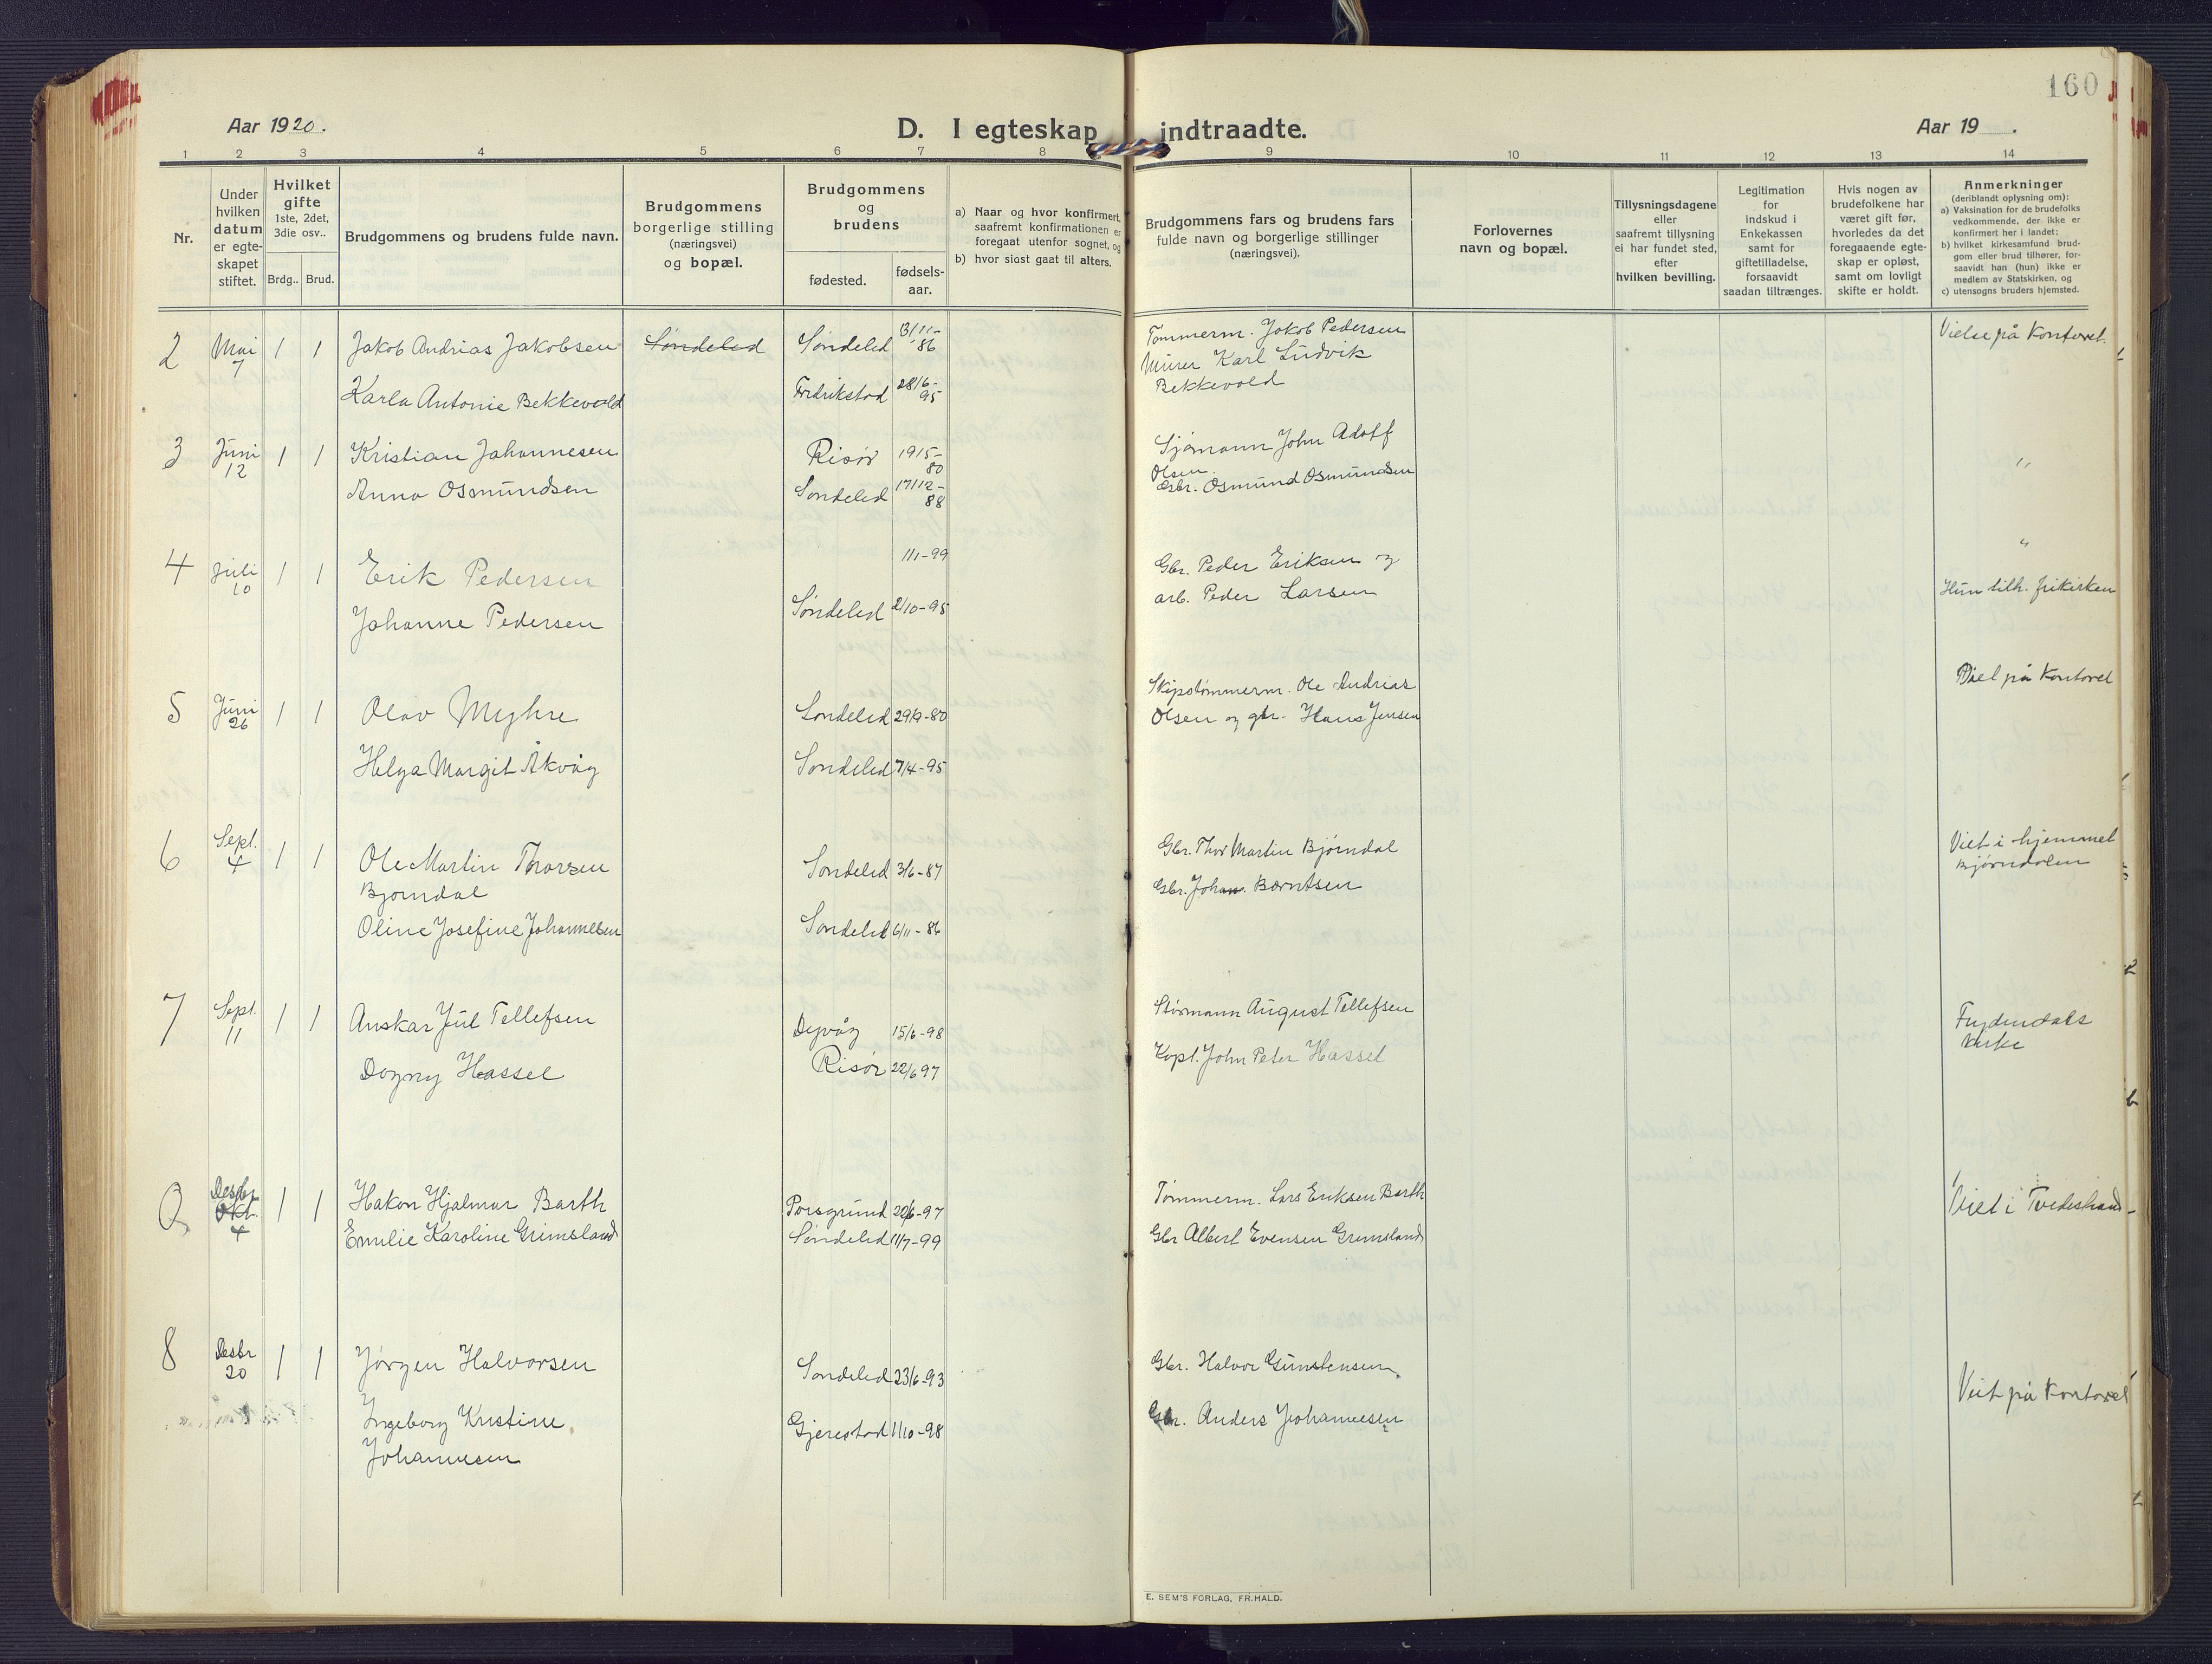 160
Aar 1920.
D. I egteskap indtraadte.
Aar 19 .
1 2 3 4 5 6 7 8 9 10 11 12 13 14
Nr.
Under
hvilken
datum
er egte-
skapet
stiftet.
Hvilket
gifte
1ste, 2det,
3die osv..
Brdg..
Brud.
Brudgommens og brudens fulde navn.
Brudgommens
borgerlige stilling
(næringsvei)
og bopæl.
Brudgommens
og
brudens
fødested.
fødsels-
aar.
a) Naar og hvor konfirmert,
saafremt konfirmationen er
foregaat utenfor sognet, og
b) hvor sidst gaat til alters.
Brudgommens fars og brudens fars
fulde navn og borgerlige stillinger
(næringsvei).
Forlovernes
navn og bopæl.
Tillysningsdagene
eller
saafremt tillysning
ei har fundet sted,
efter
hvilken bevilling.
Legitimation
for
indskud i
Enkekassen
samt for
giftetilladelse,
forsaavidt
saadan tiltrænges.
Hvis nogen av
brudefolkene har
været gift før,
hvorledes da det
foregaaende egte-
skap er opløst,
samt om lovligt
skifte er holdt.
Anmerkninger
(deriblandt oplysning om):
a) Vaksination for de brudefolks
vedkommende, der ikke er
konfirmert her i landet:
b) hvilket kirkesamfund brud-
gom eller brud tilhører, for-
saavidt han (hun) ikke er
medlem av Statskirken, og
c) utensogns bruders hjemsted.
2 Mai 7 1 1 Jakob Andrias Jakobsen Søndeled Søndeled 13/11-86 Tømmerm. Jakob Pedersen Vielse på Kontoret.
Karla Antonie Bekkevold Fredrikstad 28/6-95 Murer Karl Ludvik
Bekkevold
3 Juni 12 1 1 Kristian Johannesen Risør 19/5-80 Sjømann John Adolf
Olsen "
Anna Osmundsen Søndeled 17/12-88 Gbr. Osmund Osmundsen
4 Juli 10 1 1 Erik Pedersen 1/1-99 Gbr. Peder Eriksen og "
Johanne Pedersen Søndeled 2/10-95 arb. Peder Larsen Hun tilh. frikirken
5 Juni 26 1 1 Olav Myhre Søndeled 29/9-80 Skipstømmerm. Ole Andrias Viet på Kontoret
Olsen og gbr. Hans Jensen
Helga Margit Åkvåg Søndeled 7/4-95
6 Sept. 4 1 1 Ole Martin Thorsen Søndeled 3/6-87 Gbr. Thor Martin Bjørndal Viet i hjemmet
Bjørndal Bjørndalen
Oline Josefine Johannesen Søndeled 6/11-86 Gbr. Johan Berntsen
7 Sept. 11 1 1 Anskar Jul Tellefsen Dypvåg 15/6-98 Styrmann August Tellefsen
Dagny Hassel Risør 22/6 97 Kapt. John Peter Hassel kirke
Desbr. Okt. 4 1 1 Hakon Hjalmar Barth Porsgrund 22/6-97 Tømmerm. Lars Eriksen Barth Viet i Tvedestrand
Emilie Karoline Grimsland Søndeled 11/7-99 Gbr Albert Evensen Grimsland
8 Desbr 20 1 1 Jørgen Halvorsen Søndeled 23/6-93 Gbr. Halvor Gunstensen
Ingeborg Kristine Gjerestad 1/10-98 Gbr. Anders Johannesen Viet på Kontoret
Johannesen
E. SEM'S FORLAG, FR.HALD.